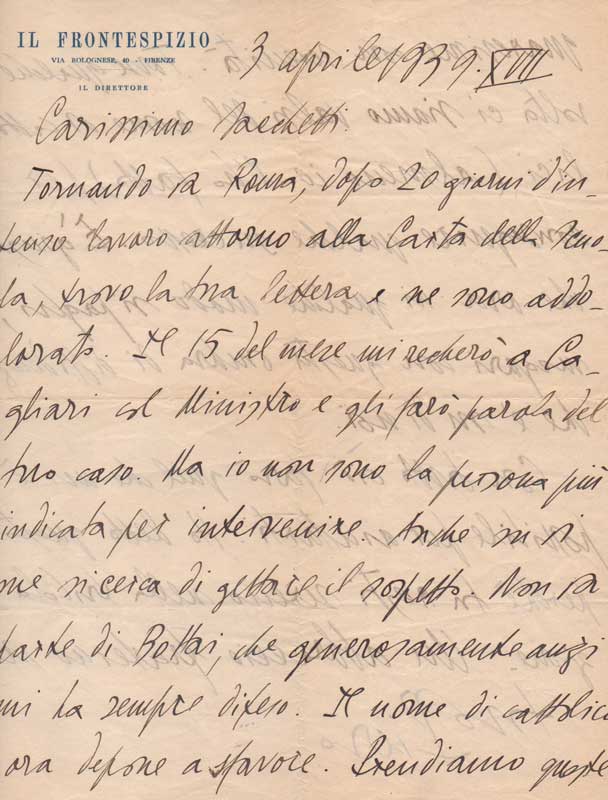 IL FRONTESPIZIO
VIA BOLOGNESE, 40 - FIRENZE
IL DIRETTORE
3 aprile 1939. XVII
Carissimo Sacchetti.
Tornando da Roma, dopo 20 giorni d'in-
tenso lavoro attorno alla Carta della Scuo-
la, trovo la tua lettera e ne sono addo-
lorato. Il 15 del mese mi recherò a Ca-
gliari col Ministro e gli farò parola del
tuo caso. Ma io non sono la persona più
indicata per intervenire. Anche su di
me si cerca di gettare il sospetto. Non da
parte di Bottai, che generosamente anzi
mi ha sempre difeso. Il nome di cattolico
ora depone a sfavore. Prendiamo queste